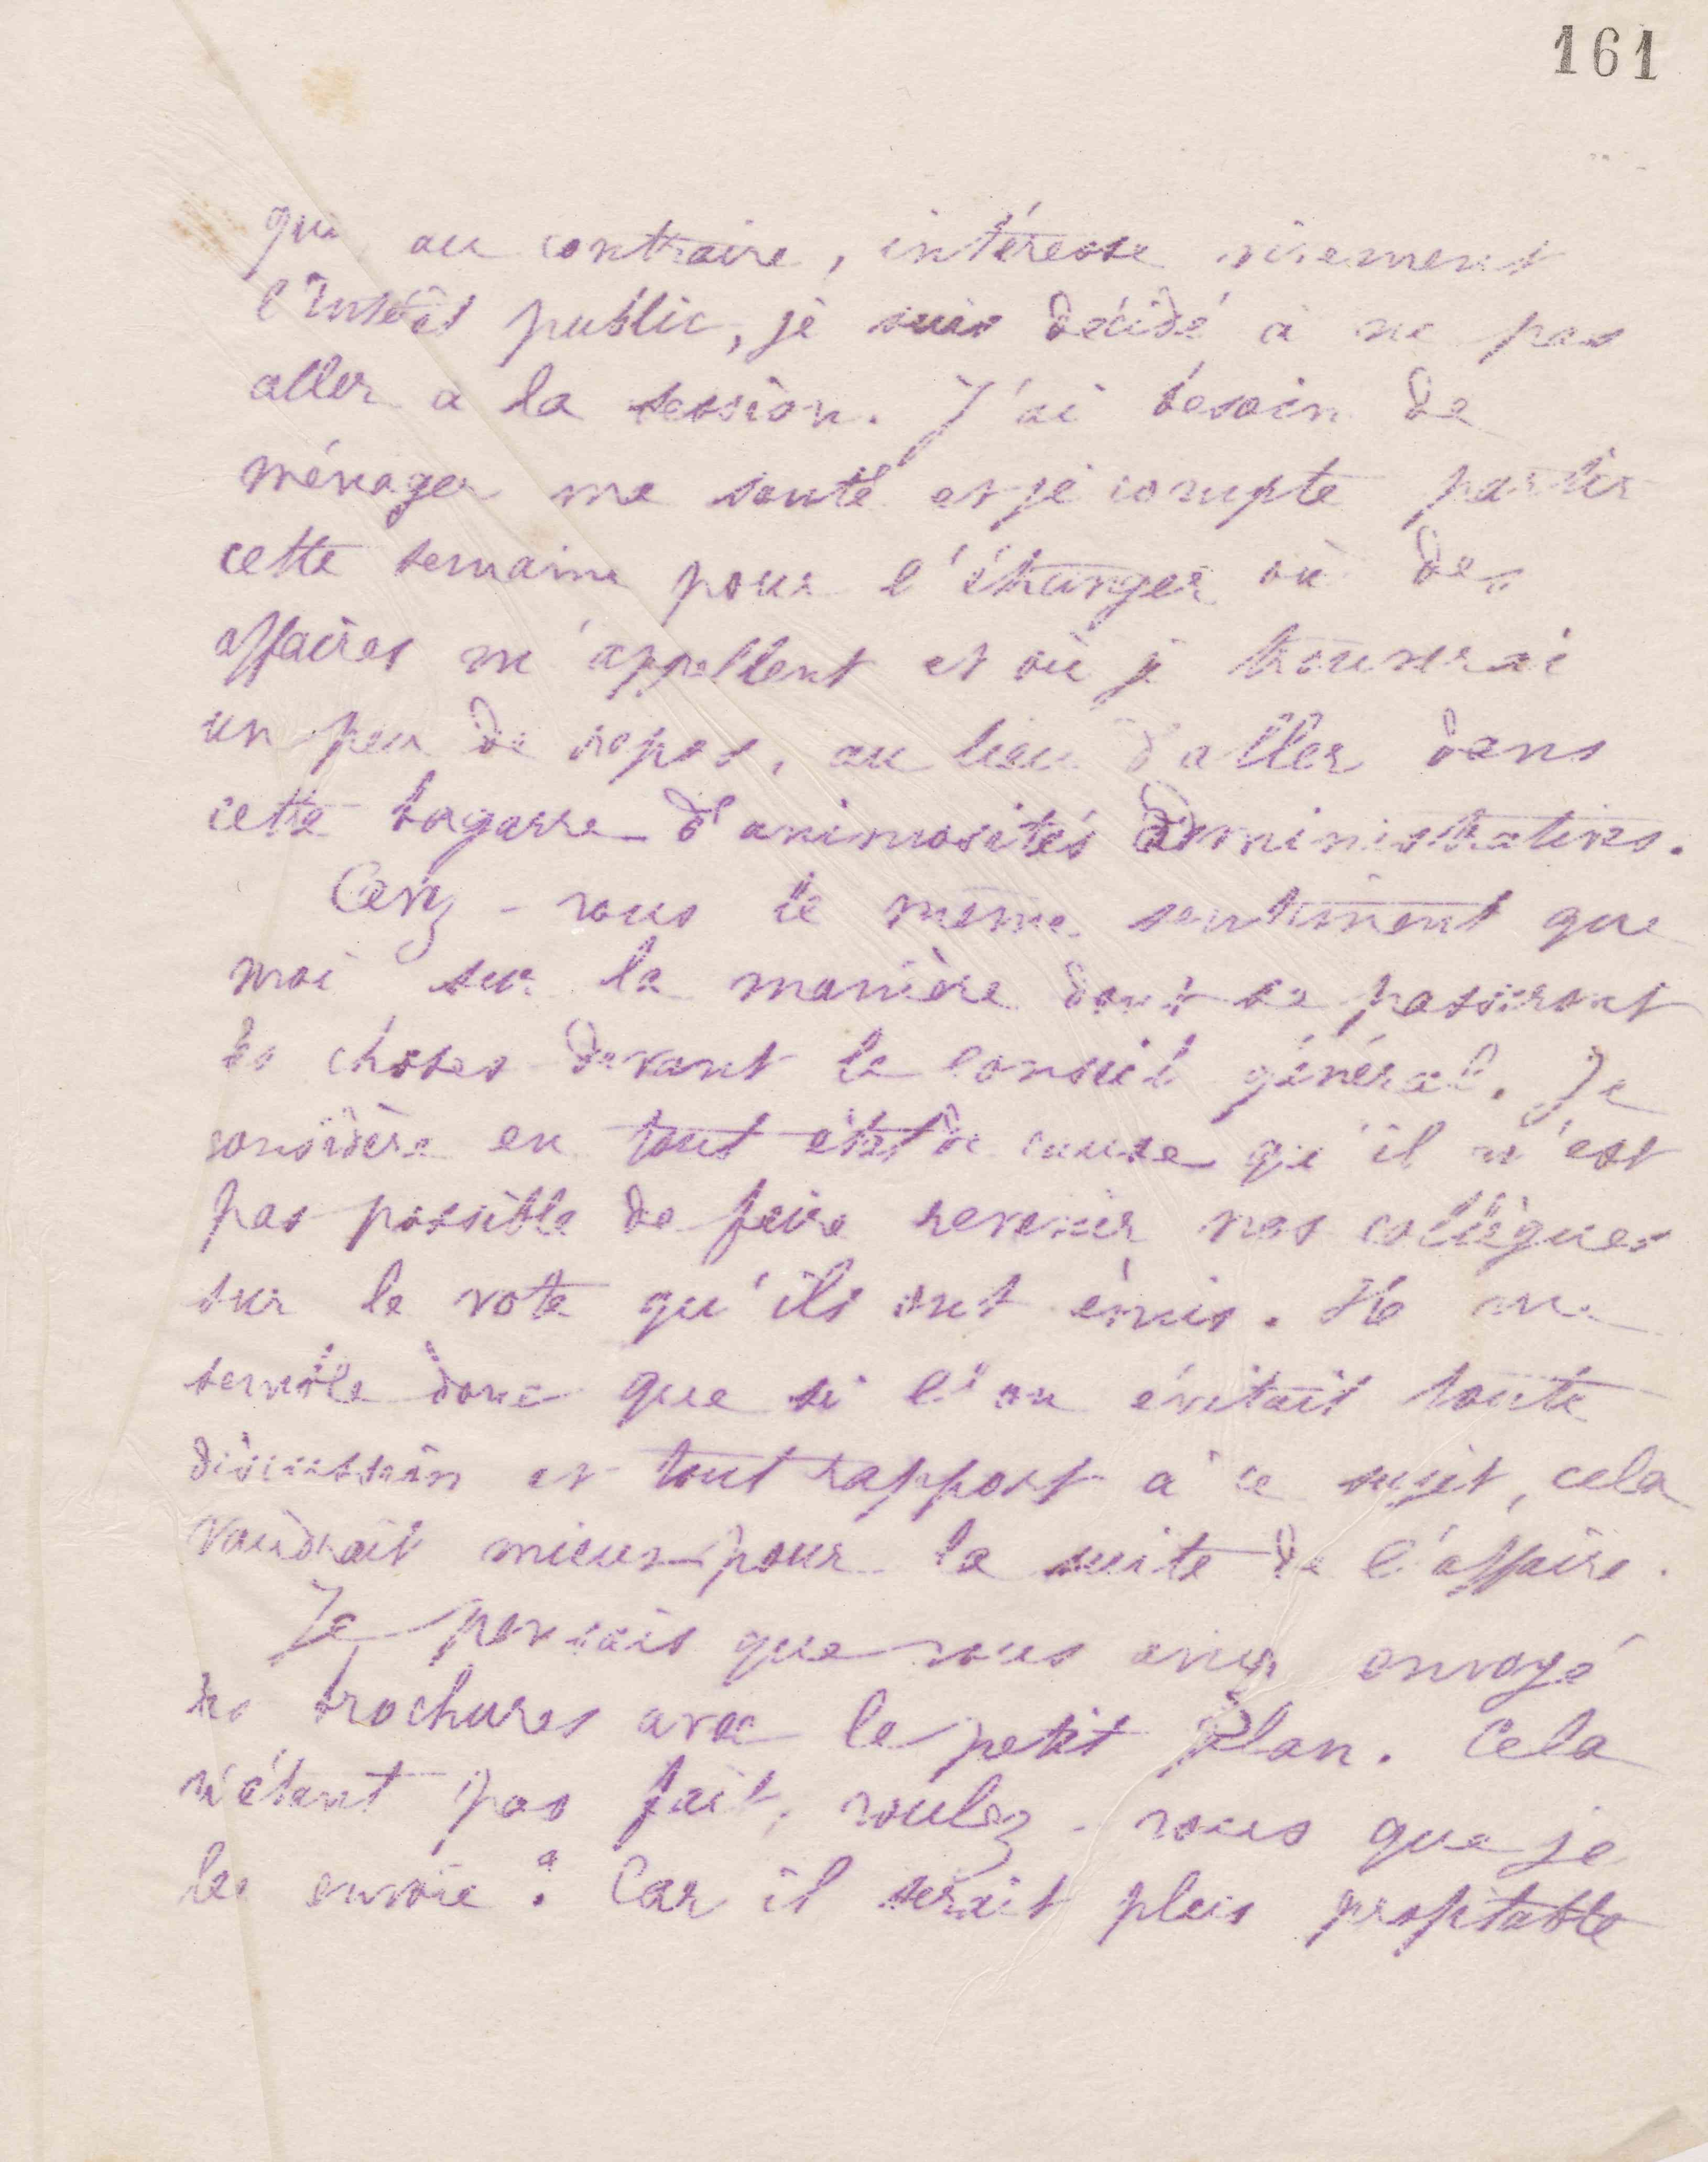 161
qui au contraire, intéresse vivement
l'Intérêt public, je suis décidé à ne pas
aller a la session. J'ai besoin de
ménager ma santé et je compte partir
cette semaine pour l'étranger où des
affaires m'appellent et où je trouverai
un peu de repos, au lieu d'aller dans
cette bagarre d'animosités administratives.
vous le même sentiment que
moi sur la manière dont se passeront
les choses devant le Conseil général. Je
considère en tout état de cause qu'il n'est
pas possible de faire revenir nos collègues
sur le vote qu'ils ont émis. Il me
semble donc que si l'on évitait toute
discussion et tout rapport à ce sujet, cela
vaudrait mieux pour la suite de l'affaire.
Je pensais que vous aviez envoyé
les brochures avec le petit plan. Cela
n'étant pas fait, voulez-vous que je
les envoie ? Car il serait plus profitable